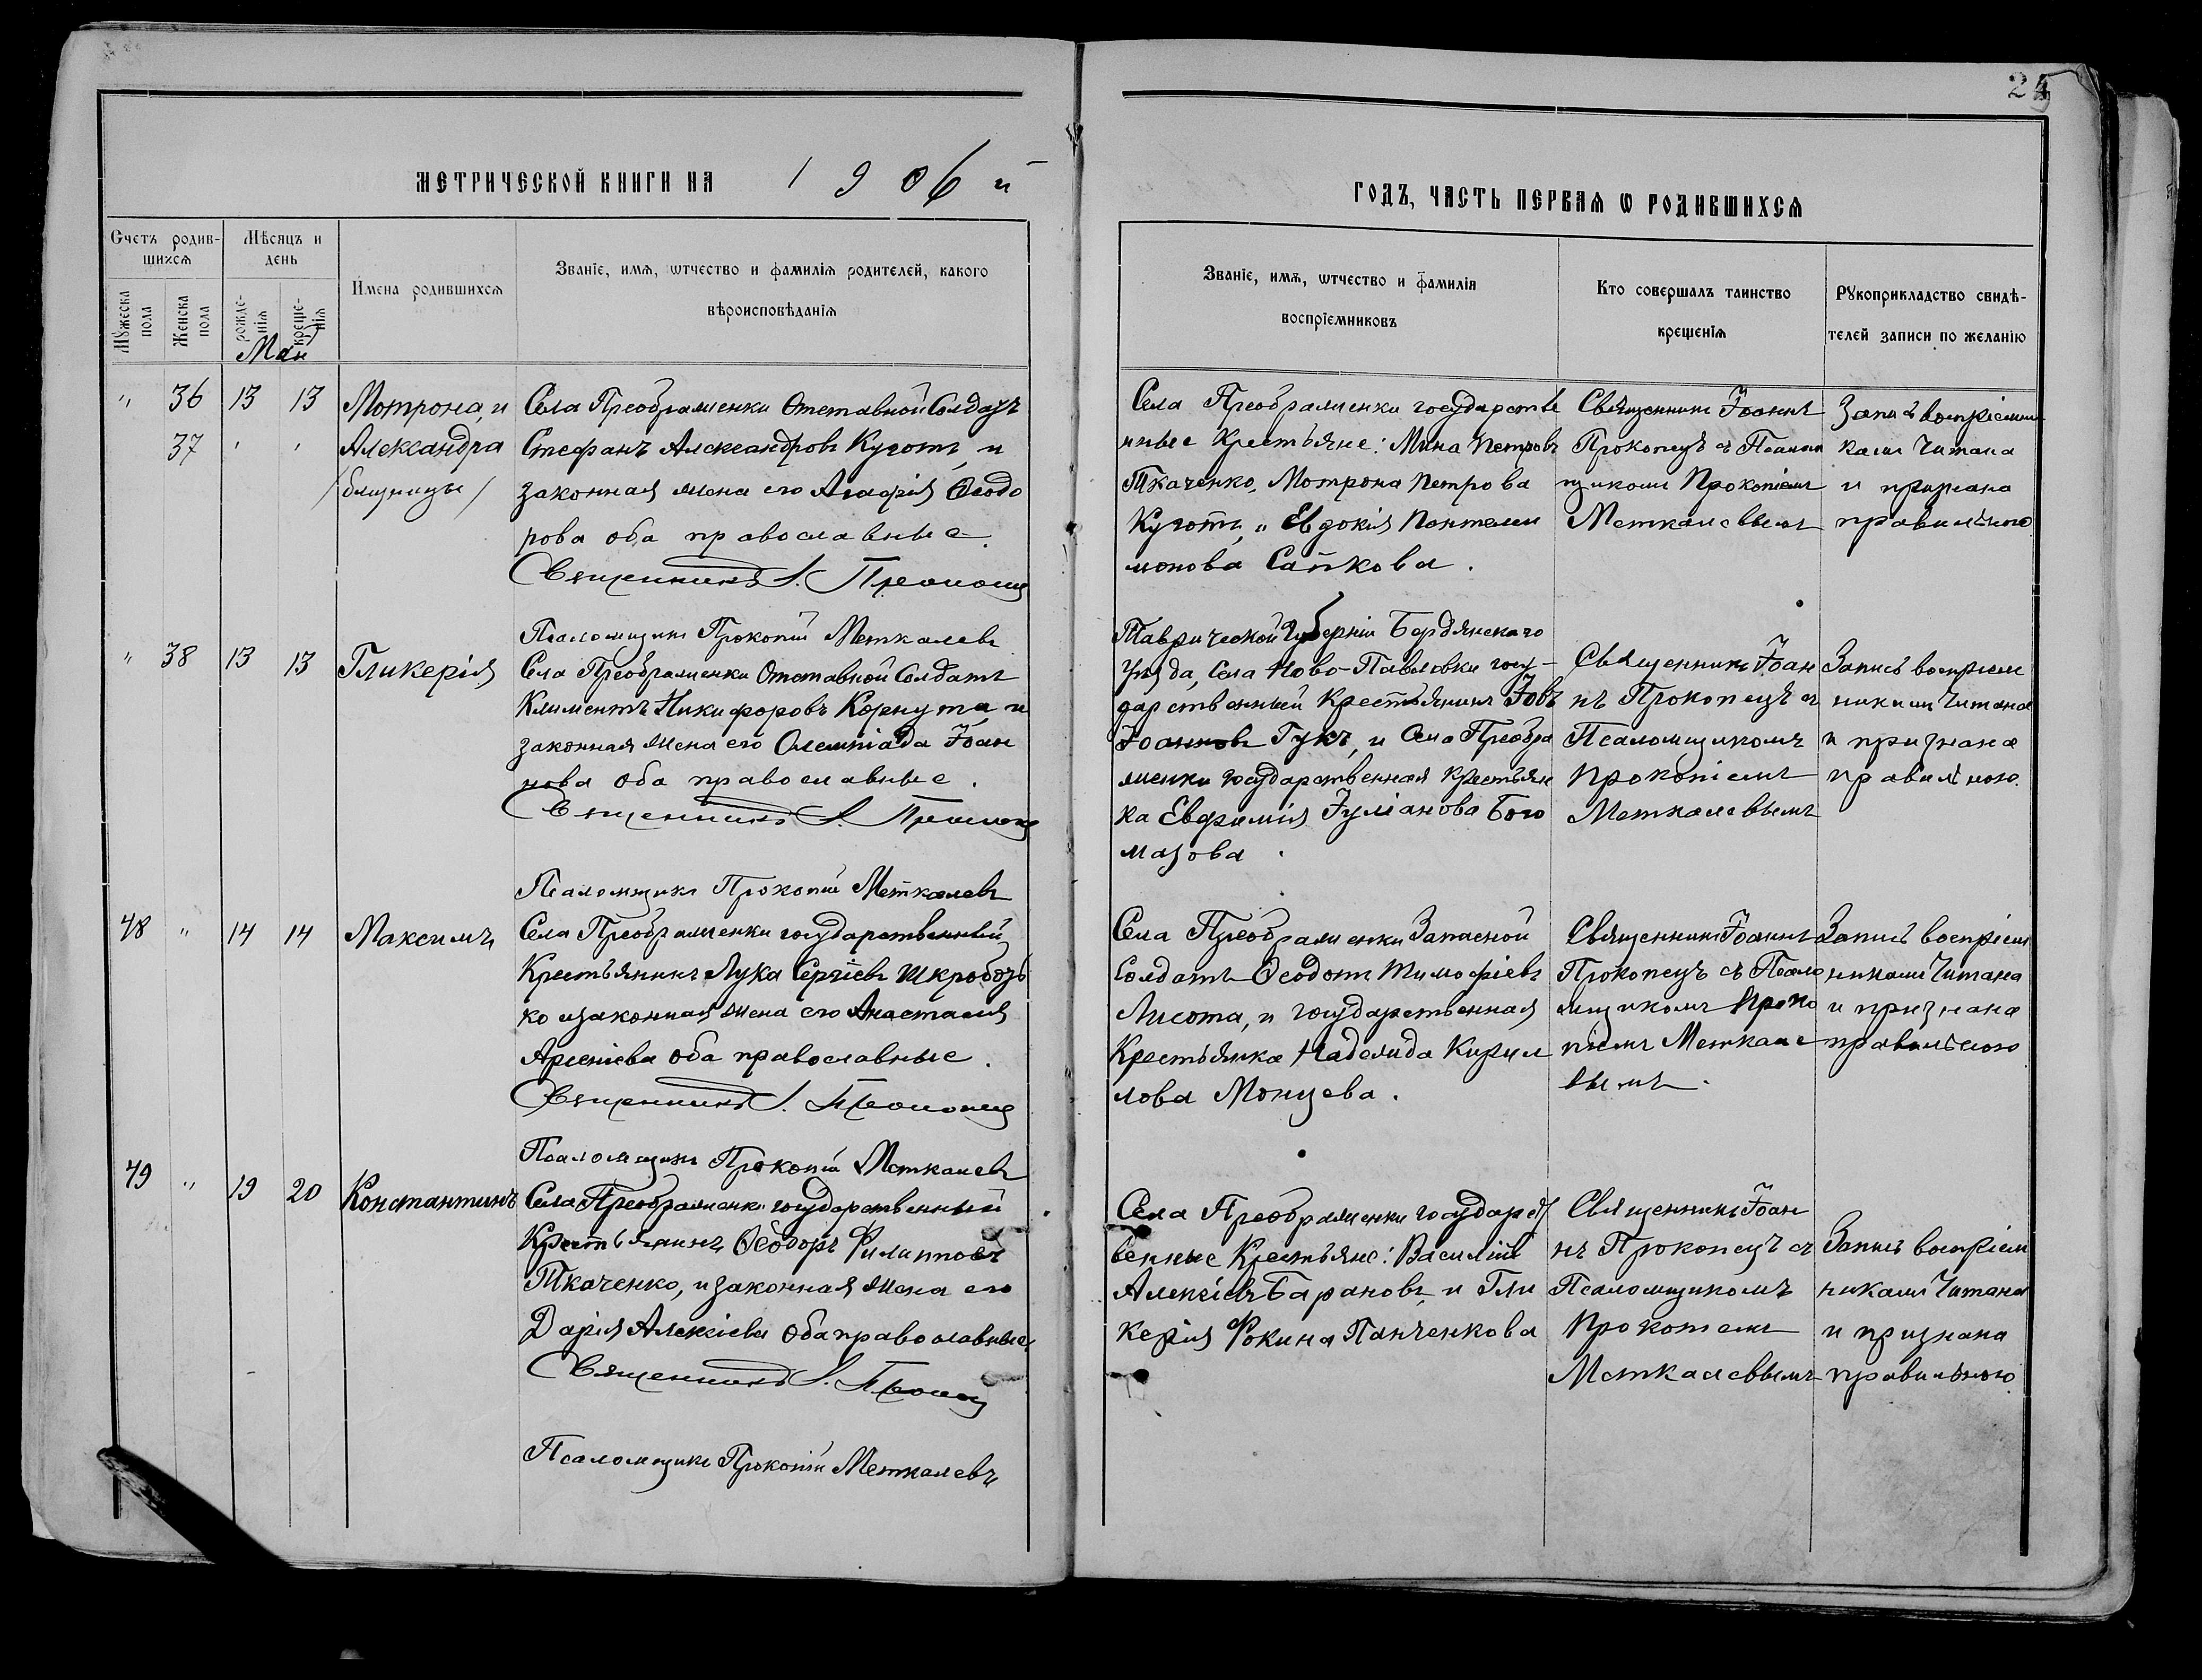 24
МЕТРИЧЕСКОЙ КНИГИ НА 1906 й
ГОДЪ, ЧАСТЬ ПЕРВАЯ Ѡ РОДИВШИХСЯ
Счетъ родив-
шихся
Мѣсяцъ и
день
Мужеска
пола
Женска
пола
рожде-
нія
креще-
нія
Маи
Имена родившихся
Званіе, имя, ѡтчество и фамилія родителей, какого
вѣроисповѣданія
Званіе, имя, ѡтчество и фамилія
воспріемниковъ
Кто совершалъ таинство
крещенія
Рукоприкладство свидѣ-
телей записи по желанію
" 36 13 13
37 " "
Мотрона, и
Александра
/близницы/
Села Преображенки Отставной Солдатъ
Стефанъ Александровъ Куготъ, и
законная жена его Агафія Ѳеодо
рова оба православные.
Священникъ І. Прокопецъ
Псаломщикъ Прокопій Меткалевъ
Села Преображенки государстве
нные Крестьяне: Мина Петровъ
Ткаченко, Мотрона Петрова
Куготъ, " Евдокія Пантелеи
монова Сапкова.
Священникъ Іоаннъ
Прокопецъ съ Псалом
щикомъ Прокопіемъ
Меткалевымъ
Запись воспріемни
ками Читана
и признана
правильною
" 38 13 13
Гликерія
Села Преображенки Отставной Солдатъ
Климентъ Никифоровъ Корнута, и
законная жена его Олемпіада Іоан
нова оба православные.
Священникъ І. Прокопецъ
Псаломщикъ Прокопій Меткалевъ
Таврической Губерніи Бердянскаго
Уѣзда, Села Ново-Павловки госу-
дарственный Крестьянинъ Іовъ
Іоанновъ Гукъ, и Села Преобра
женки государственная Крестьян
ка Евфимія Іуліанова Бого
мазова.
Священникъ Іоан
нъ Прокопецъ съ
Псаломщикомъ
Прокопіемъ
Меткалевымъ
Запись воспріем
никами Читана
и признана
правильною.
48 " 14 14
Максимъ
Села Преображенки государственный
Крестьянинъ Лука Сергіевъ Шкробозь
ко и законная жена его Анастасія
Арсеніева оба православные.
Священникъ І. Прокопецъ
Псаломщикъ Прокопій Меткалевъ
Села Преображенки Запасной
Солдатъ Ѳеодотъ Тимофіевъ
Лисота, и государственная
Крестьянка Надежда Кирил
лова Монцева.
Священникъ Іоаннъ
Прокопецъ съ Псало
мщикомъ Проко
піемъ Меткале
вымъ.
Запись воспріем
никами Читана
и признана
правильною
49 " 19 20
Константинъ
Села Преображенки государственный
Крестьянинъ Ѳеодоръ Филипповъ
Ткаченко, и законная жена его
Дарія Алексіева оба православные.
Священникъ І. Прокопецъ
Псаломщикъ Прокопій Меткалевъ
Села Преображенки государст
венные Крестьяне: Василій
Алексіевъ Барановъ, и Гли
керія Фокина Панченкова
Священникъ Іоан
нъ Прокопецъ съ
Псаломщикомъ
Прокопіемъ
Меткалевымъ
Запись воспріем
никами Читана
и признана
правильною.